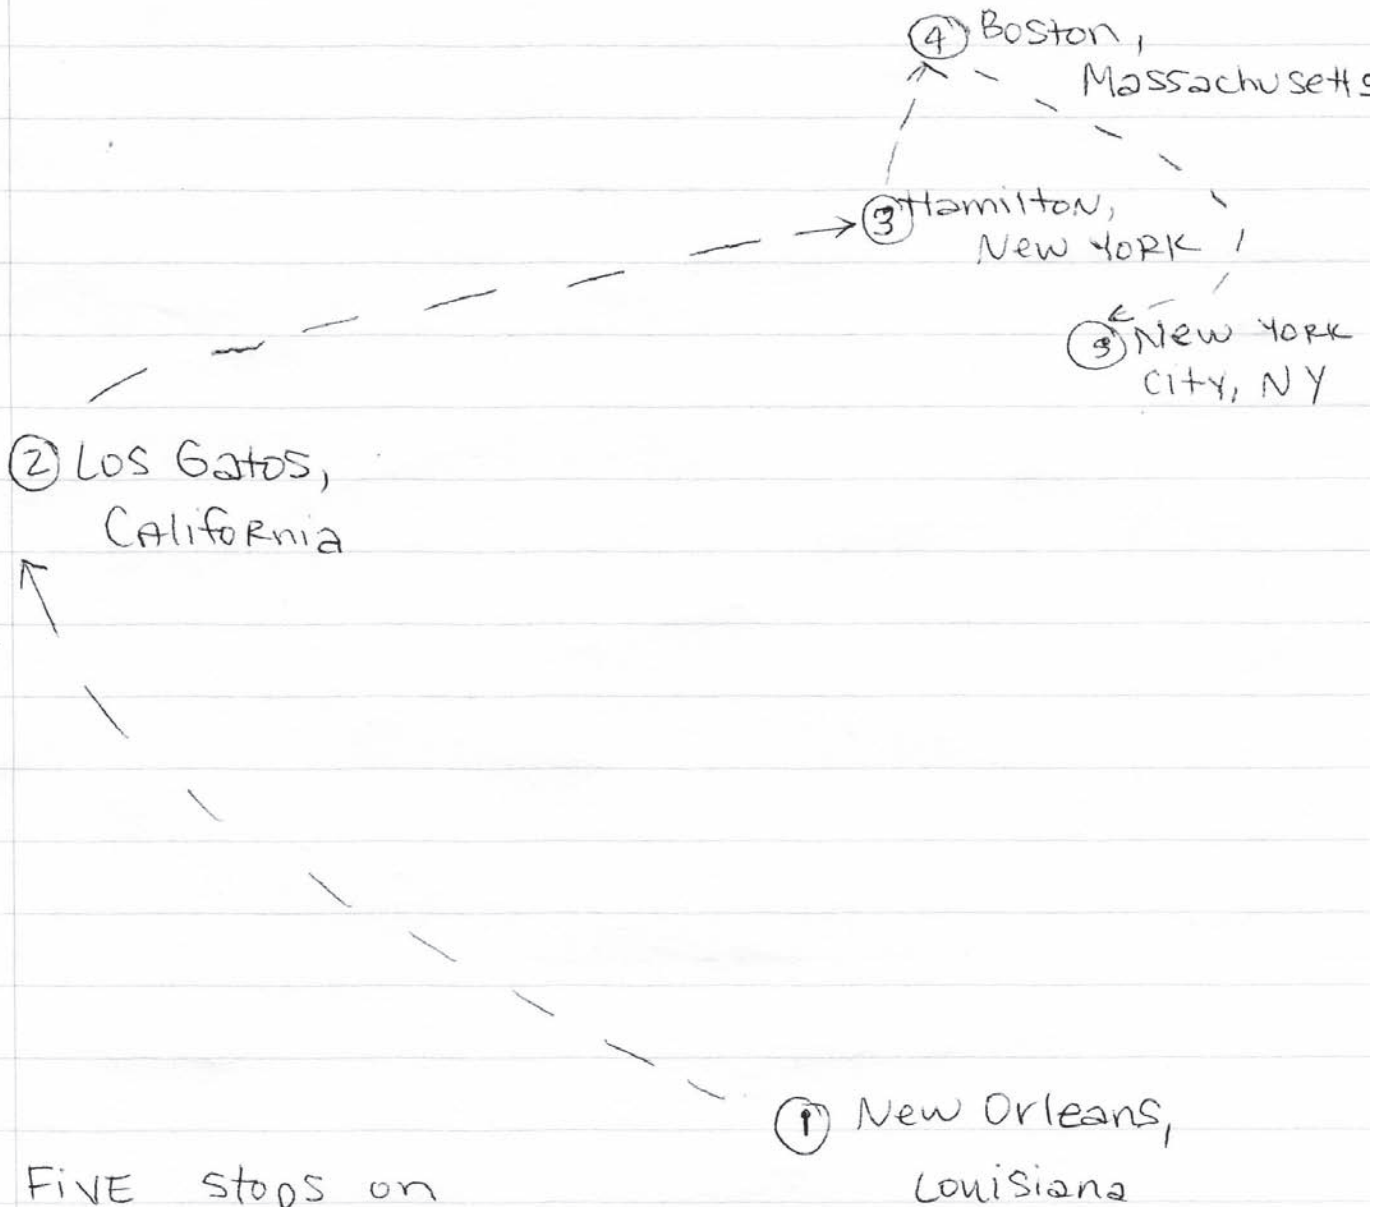 ④ Boston,
Massachusetts
③ Hamilton,
New YORK
⑤ New YORK
City, NY
② Los Gatos,
CAlifoRnia
① New Orleans,
Louisiana
FiVE stops on